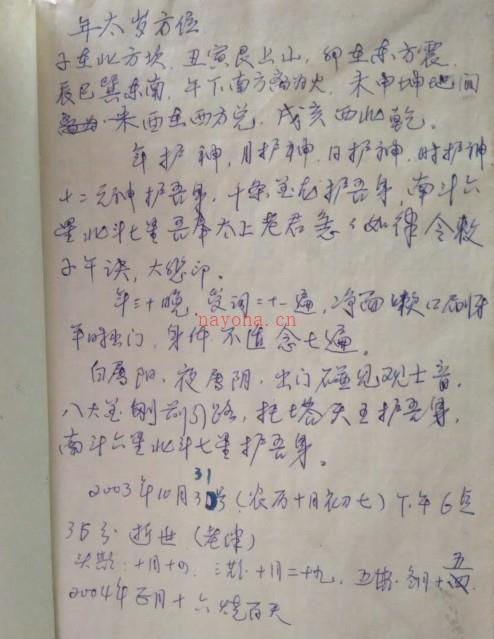 年太岁方位
子在北方坎，丑寅艮上山，卯在东方震
辰巳巽东南，午下南方离为火，未申坤地间
酉在西方兑，戌亥西北乾。
年护神，月护神，日护神，时护神
十二元神护吾身，十条金龙护吾身，南斗六
星北斗七星吾奉太上老君急〻如律令敕
子午诀，大悲印。
年三十晚，受词二十一遍，净面漱口刷牙
平时出门，身体不适念七遍。
nayona.cn
白属阳，夜属阴，出门碰见观士音，
八大金刚前引路，托塔天王护吾身，
南斗六星北斗七星护吾身。
31
2003年10月3号(农历十月初七)下午6点
35分逝世(老律)
头期：十月十四，三期：十月二十九，五期：
2004年正月十六烧百天